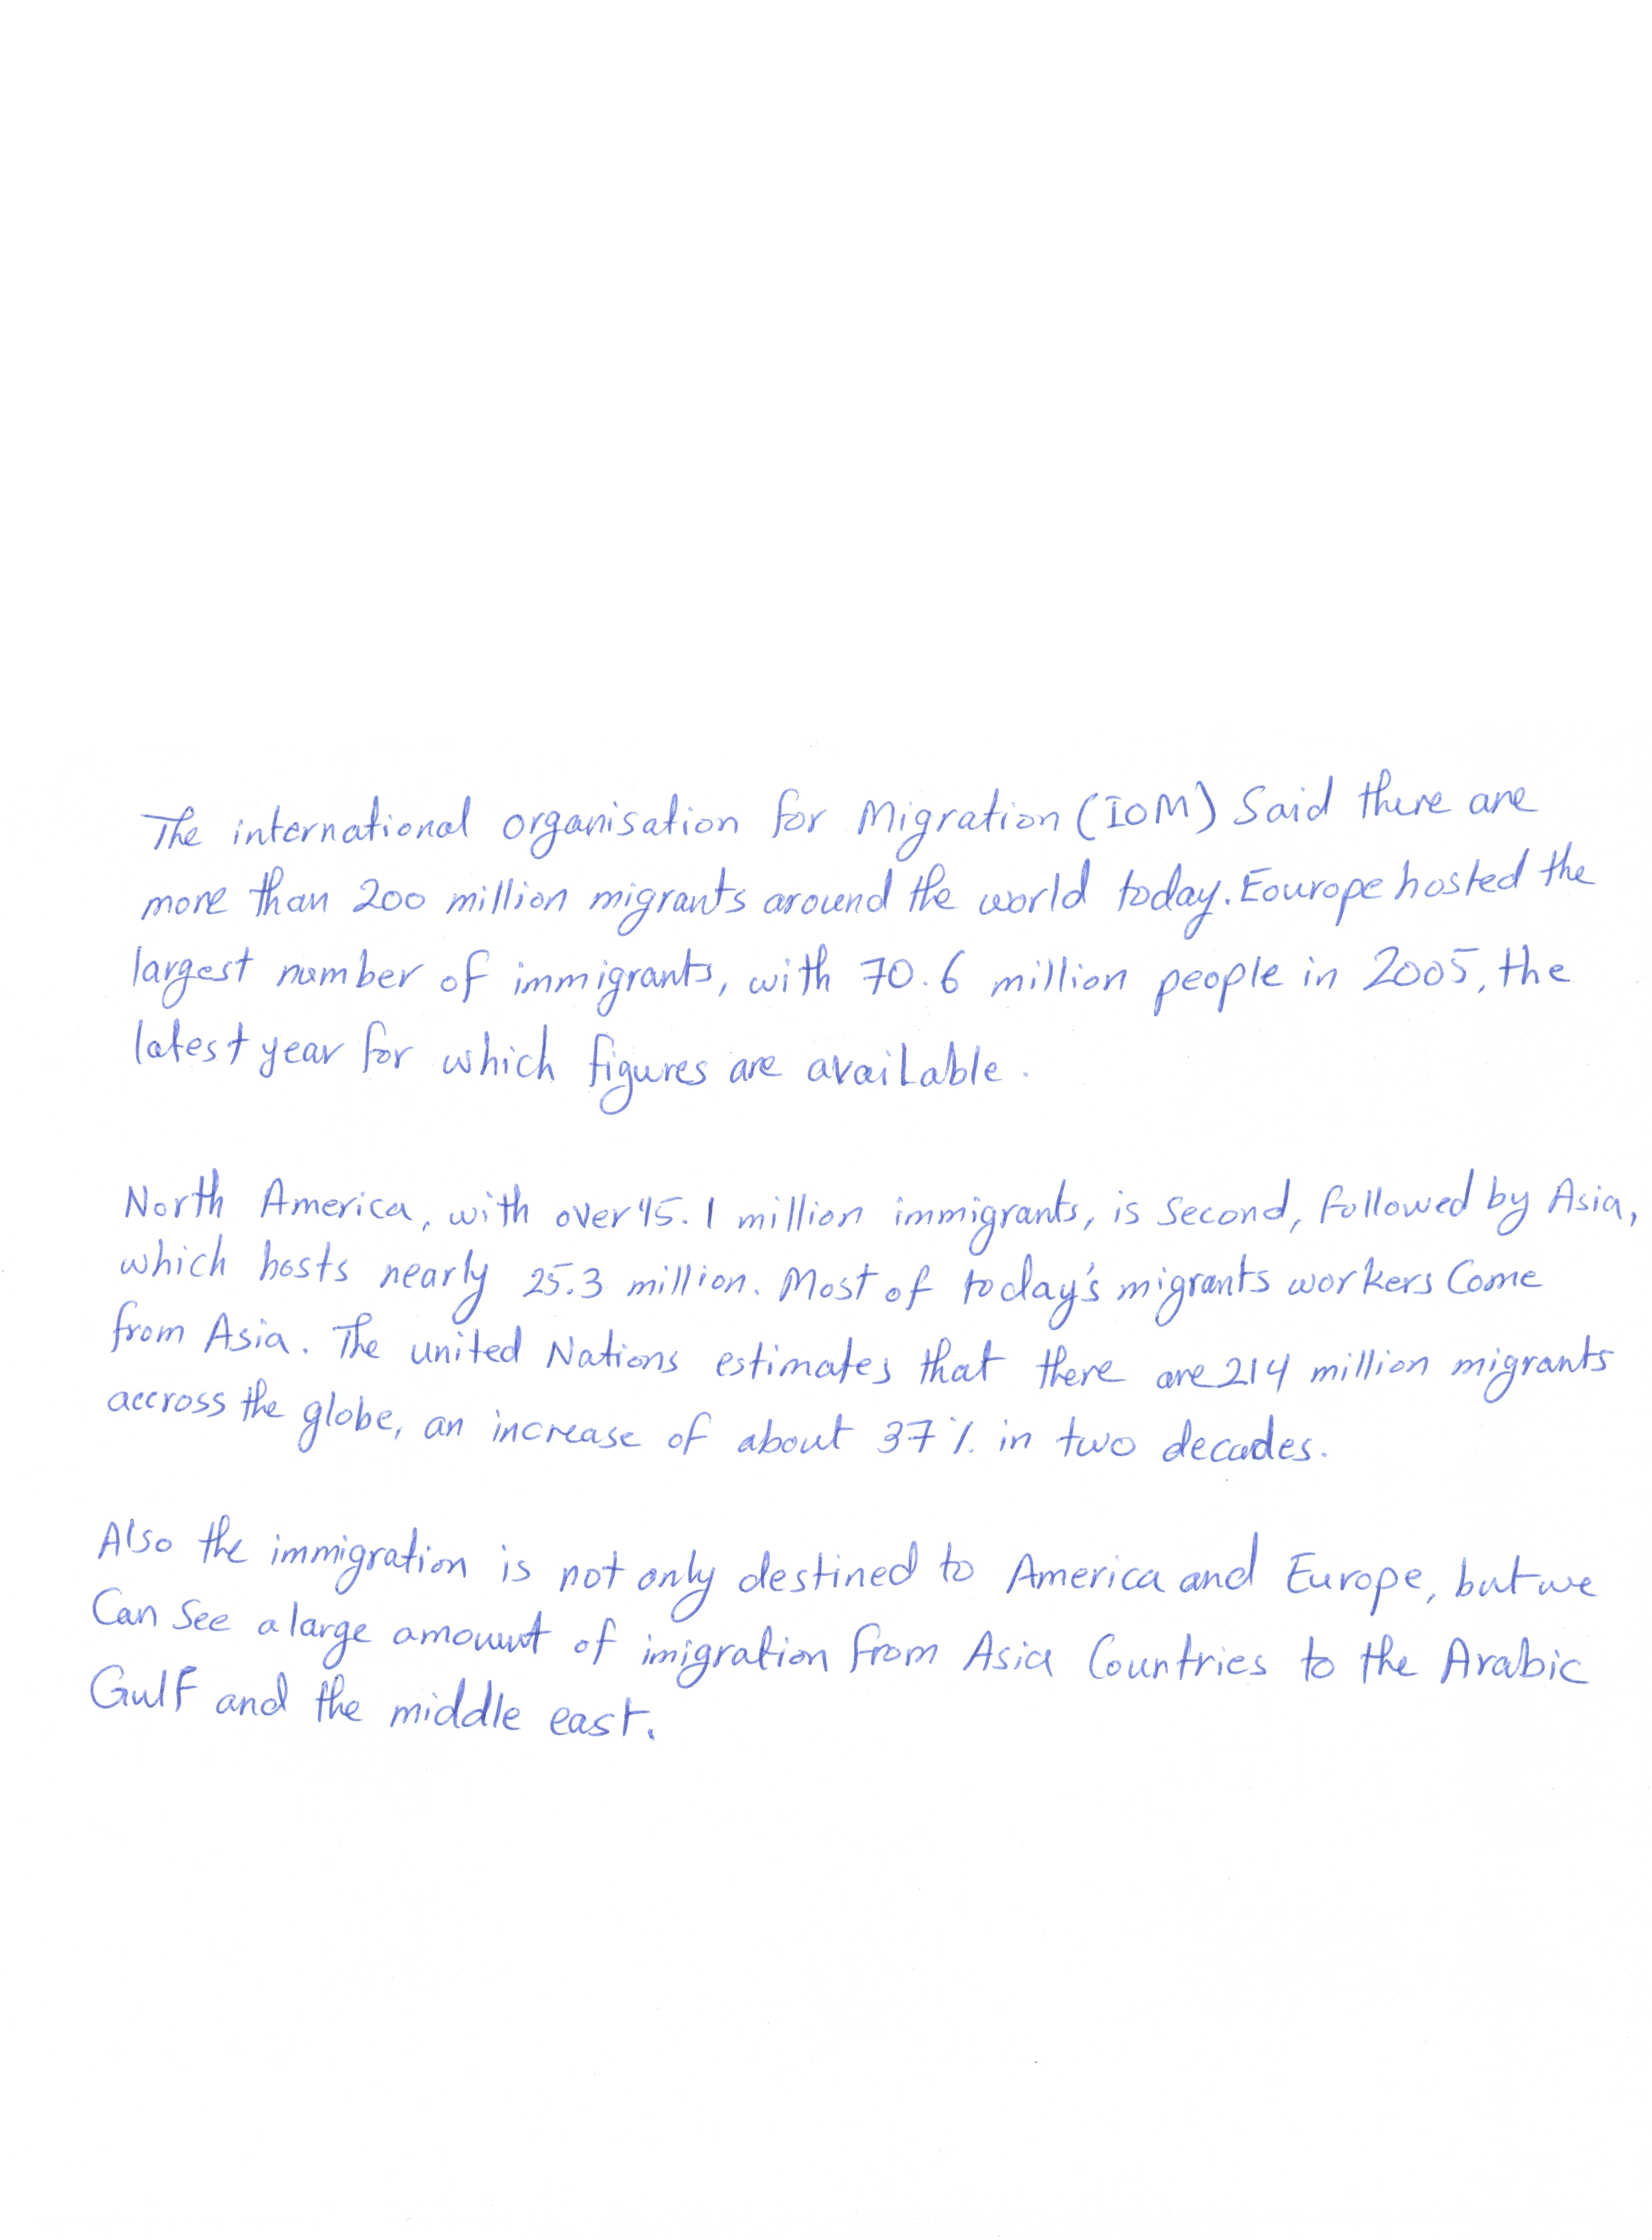 The international organisation for Migration (IOM) Said there are
more than 200 million migrants around the world today. Eourope hosted the
largest number of immigrants, with 70.6 million people in 2005, the
latest year for which figures are available.
North America, with over 45.1 million immigrants, is Second, followed by Asia,
which hosts nearly 25.3 million. Most of today's migrants workers Come
from Asia. The united Nations estimates that there are 214 million migrants
accross the globe, an increase of about 37% in two decades.
Also the immigration is not only destined to America and Europe, but we
Can See a large amouunt of imigration from Asia Countries to the Arabic
Gulf and the middle east.